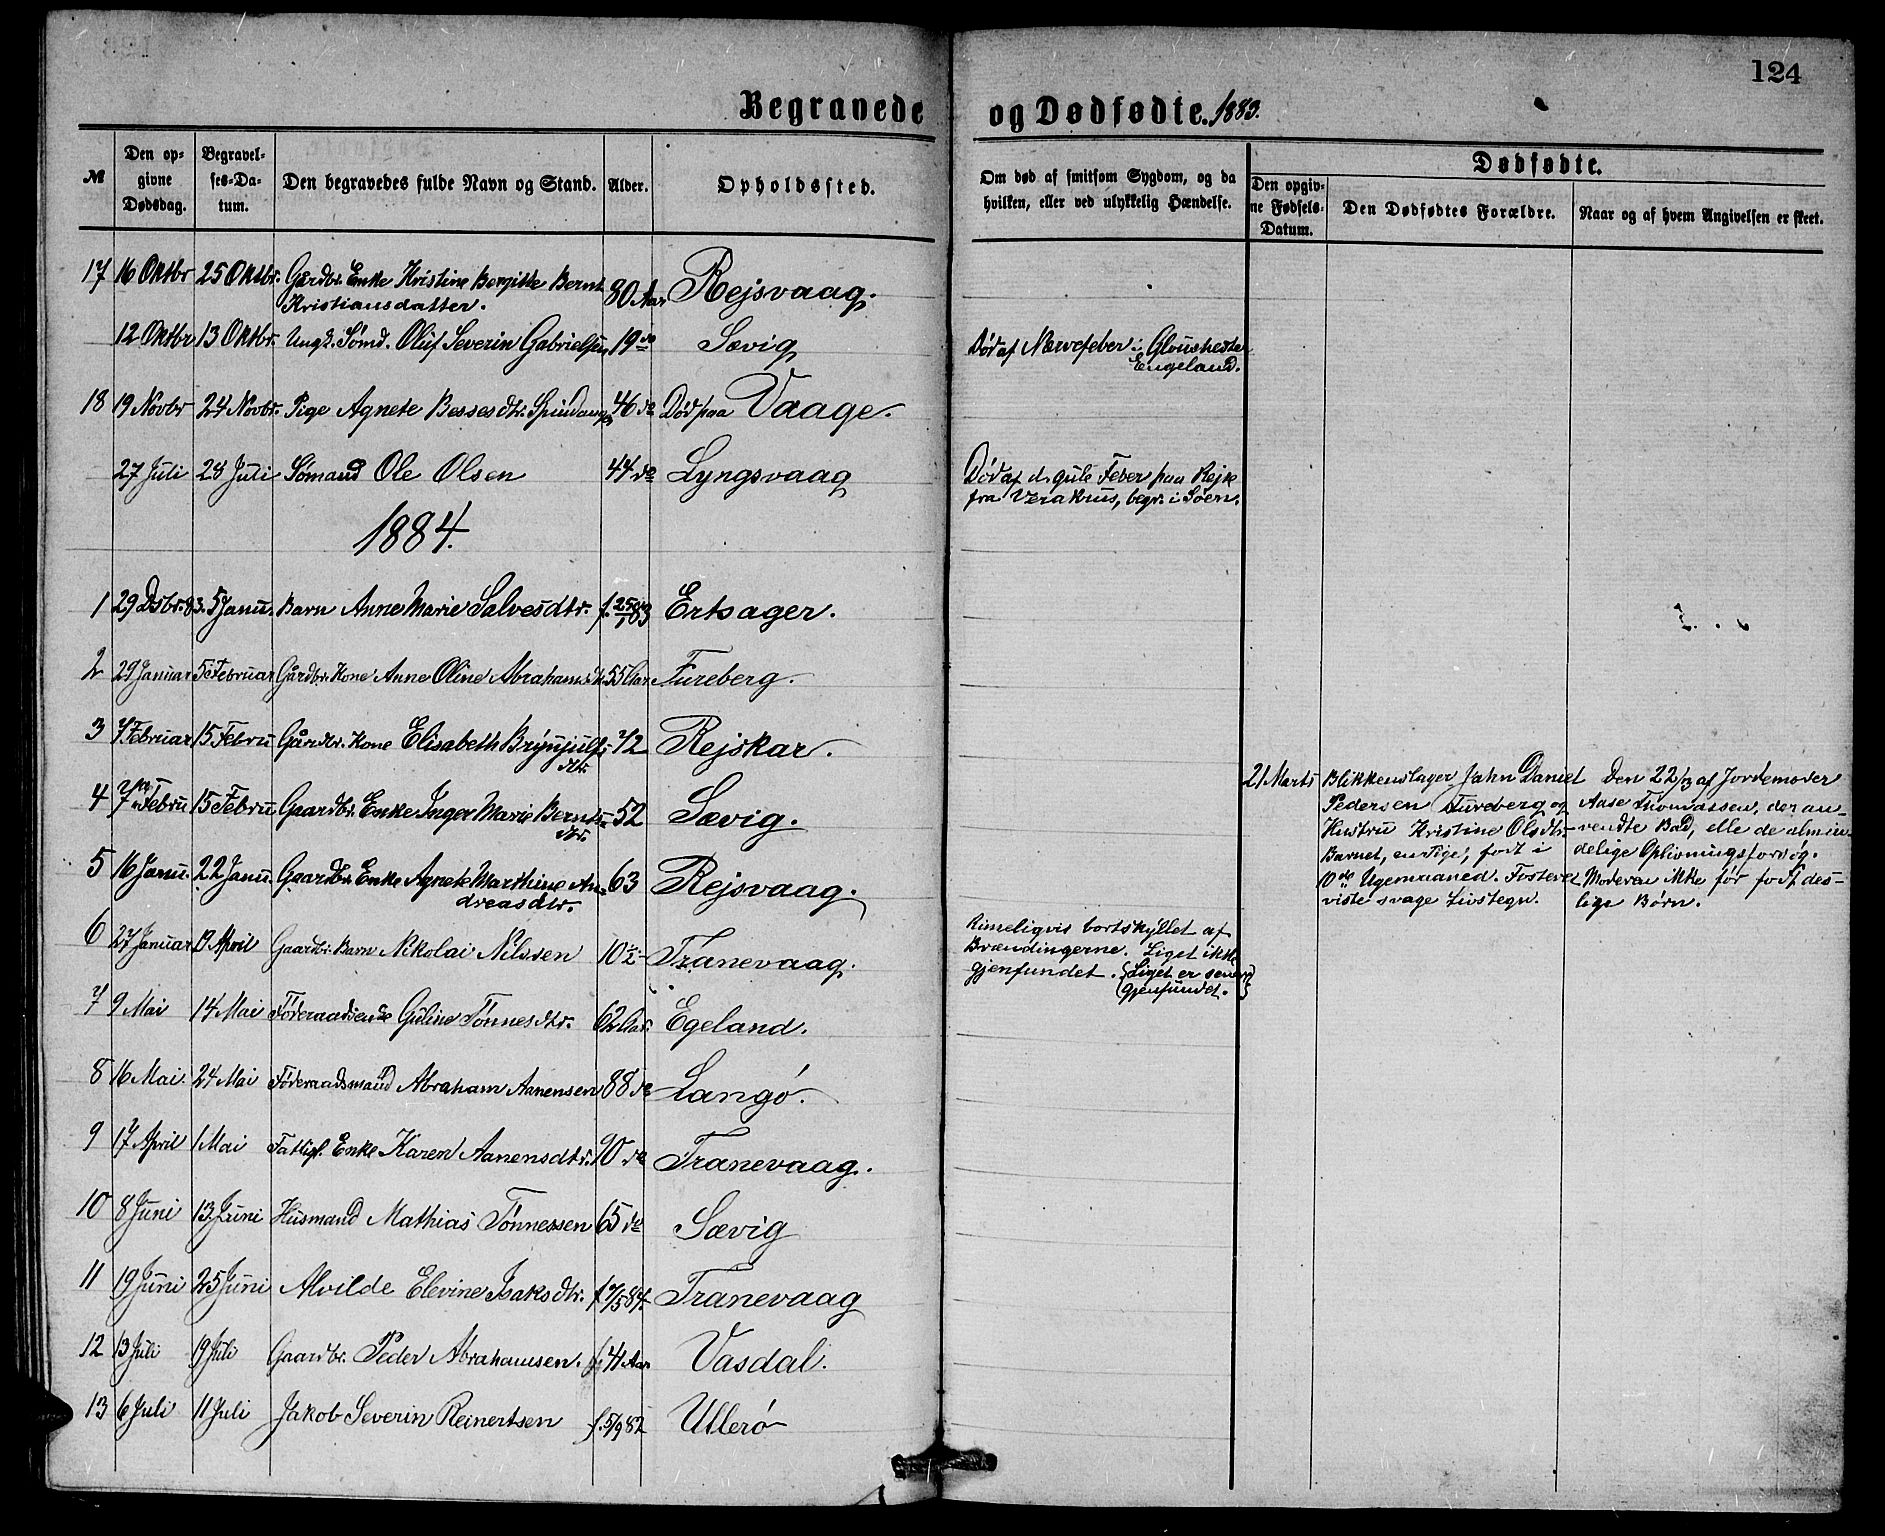 124
Begravede og Dødfødte. 1883.
№ Den opgivne Dødsdag. Begravelses-Datum. Den begravedes fulde Navn og Stand. Alder. Opholdssted. Om død af smitsom Sygdom, og da hvilken, eller ved ulykkelig Hændelse. Dødfødte. Den opgivne Fødsels-Datum. Den Dødfødtes Forældre. Naar og af hvem Angivelsen er skeet.
17 16 Oktbr 25 Oktbr. Gardbr. Enke Kristine Bergitte Bernt Kristiansdatter. 80 Aar Rejsvaag.
12 Oktbr 13 Oktbr. Ungk. Sømd. Oluf Severin Gabrielsen 19 do Sævig Død af Nervefeber i Gloushester Engeland.
18 19 Novbr 24 Novbr. Pige Agnete Bessesdtr. 46 do Død paa Vaage.
27 Juli 28 Juli Sømand Ole Olsen 44 do Lyngsvaag Død af d. gule Feber paa Rejse fra Verakrus, begr. i Søen.
1884.
1 29 Dsbr. 83. 5 Janu. Barn Anne Marie Salvesdtr. f. 25/1 83 Ertsager.
2 29 Januar 5 Februar Gårdbr. Kone Anne Oline Abrahamsdt. 55 Aar Fureberg.
3 7 Februar 15 Febru Gårdbr. Kone Elisabeth Brynjulfs- dtr. 72 Rejskar.
4 7de Febru 15 Febru Gaardbr. Enke Inger Marie Bernts- dtr. 52 Sævig.
21 Marts Blikkenslager Jahn Daniel Pedersen Fureberg og Hustru Kristine Olsdtr. Barnet, en Pige, født i 10de Ugemaaned. Fosteret viste svage Livstegn.
Den 22/3 af Jordemoder Aase Thomassen, der anvendte Bad, elle de almindelige Oplivningsforsøg. Moderen ikke før født deslige Børn.
5 16 Janu. 22 Janu. Gaardbr. Enke Agnete Marthine Andreasdtr. 63 Rejsvaag.
6 27 Januar 19 April Gaardbr. Barn Nikolai Nilssen 10 ½ Tranevaag. Rimeligvis bortskyllet af Brændingerne. Liget ikke gjenfundet. (Liget er senere gjenfundet.)
7 9 Mai 14 Mai Føderaadsenke Guline Tønnesdtr. 62 Aar. Egeland.
8 16 Mai. 24 Mai Føderaadsmand Abraham Aanensen 88 do Langø.
9 17 April 1 Mai Fattigl. Enke Karen Aanensdtr. 90 do Tranevaag.
10 8 Juni 13 Juni Husmand Mathias Tønnessen 65 do Sævig
11 19 Juni 25 Juni Alvilde Elevine Isaksdtr. f. 7/5 84. Tranevaag
12 13 Juli 19 Juli Gaardbr. Peder Abrahamsen. 41 Aar Vasdal.
13 6 Juli 11 Juli Jakob Severin Reinertsen f. 5/9 82 Ullerø